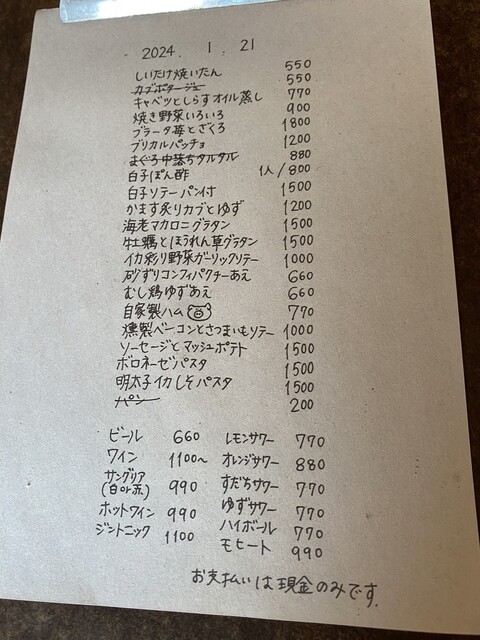 2024. 1. 21
しいたけ焼いたん 550
カブポタージュ 550
キャベツとしらすオイル蒸し 770
焼き野菜いろいろ 900
ブラータ苺とざくろ 1800
ブリカルパッチョ 1200
まぐろ中落ちタルタル 880
白子ぽん酢 1人/800
白子ソテーパン付 1500
かます炙りカブとゆず 1200
海老マカロニグラタン 1500
牡蠣とほうれん草グラタン 1500
イカ彩り野菜ガーリックソテー 1000
砂ずりコンフィパクチーあえ 660
むし鶏ゆずあえ 660
自家製ハム 770
燻製ベーコンとさつまいもソテー 1000
ソーセージとマッシュポテト 1500
ボロネーゼパスタ 1500
明太子イカしそパスタ 1500
パン 200
ビール 660 レモンサワー 770
ワイン 1100~ オレンジサワー 880
サングリア (白or赤) 990 すだちサワー 770
ホットワイン 990 ゆずサワー 770
ジントニック 1100 ハイボール 770
モヒート 990
お支払いは現金のみです.